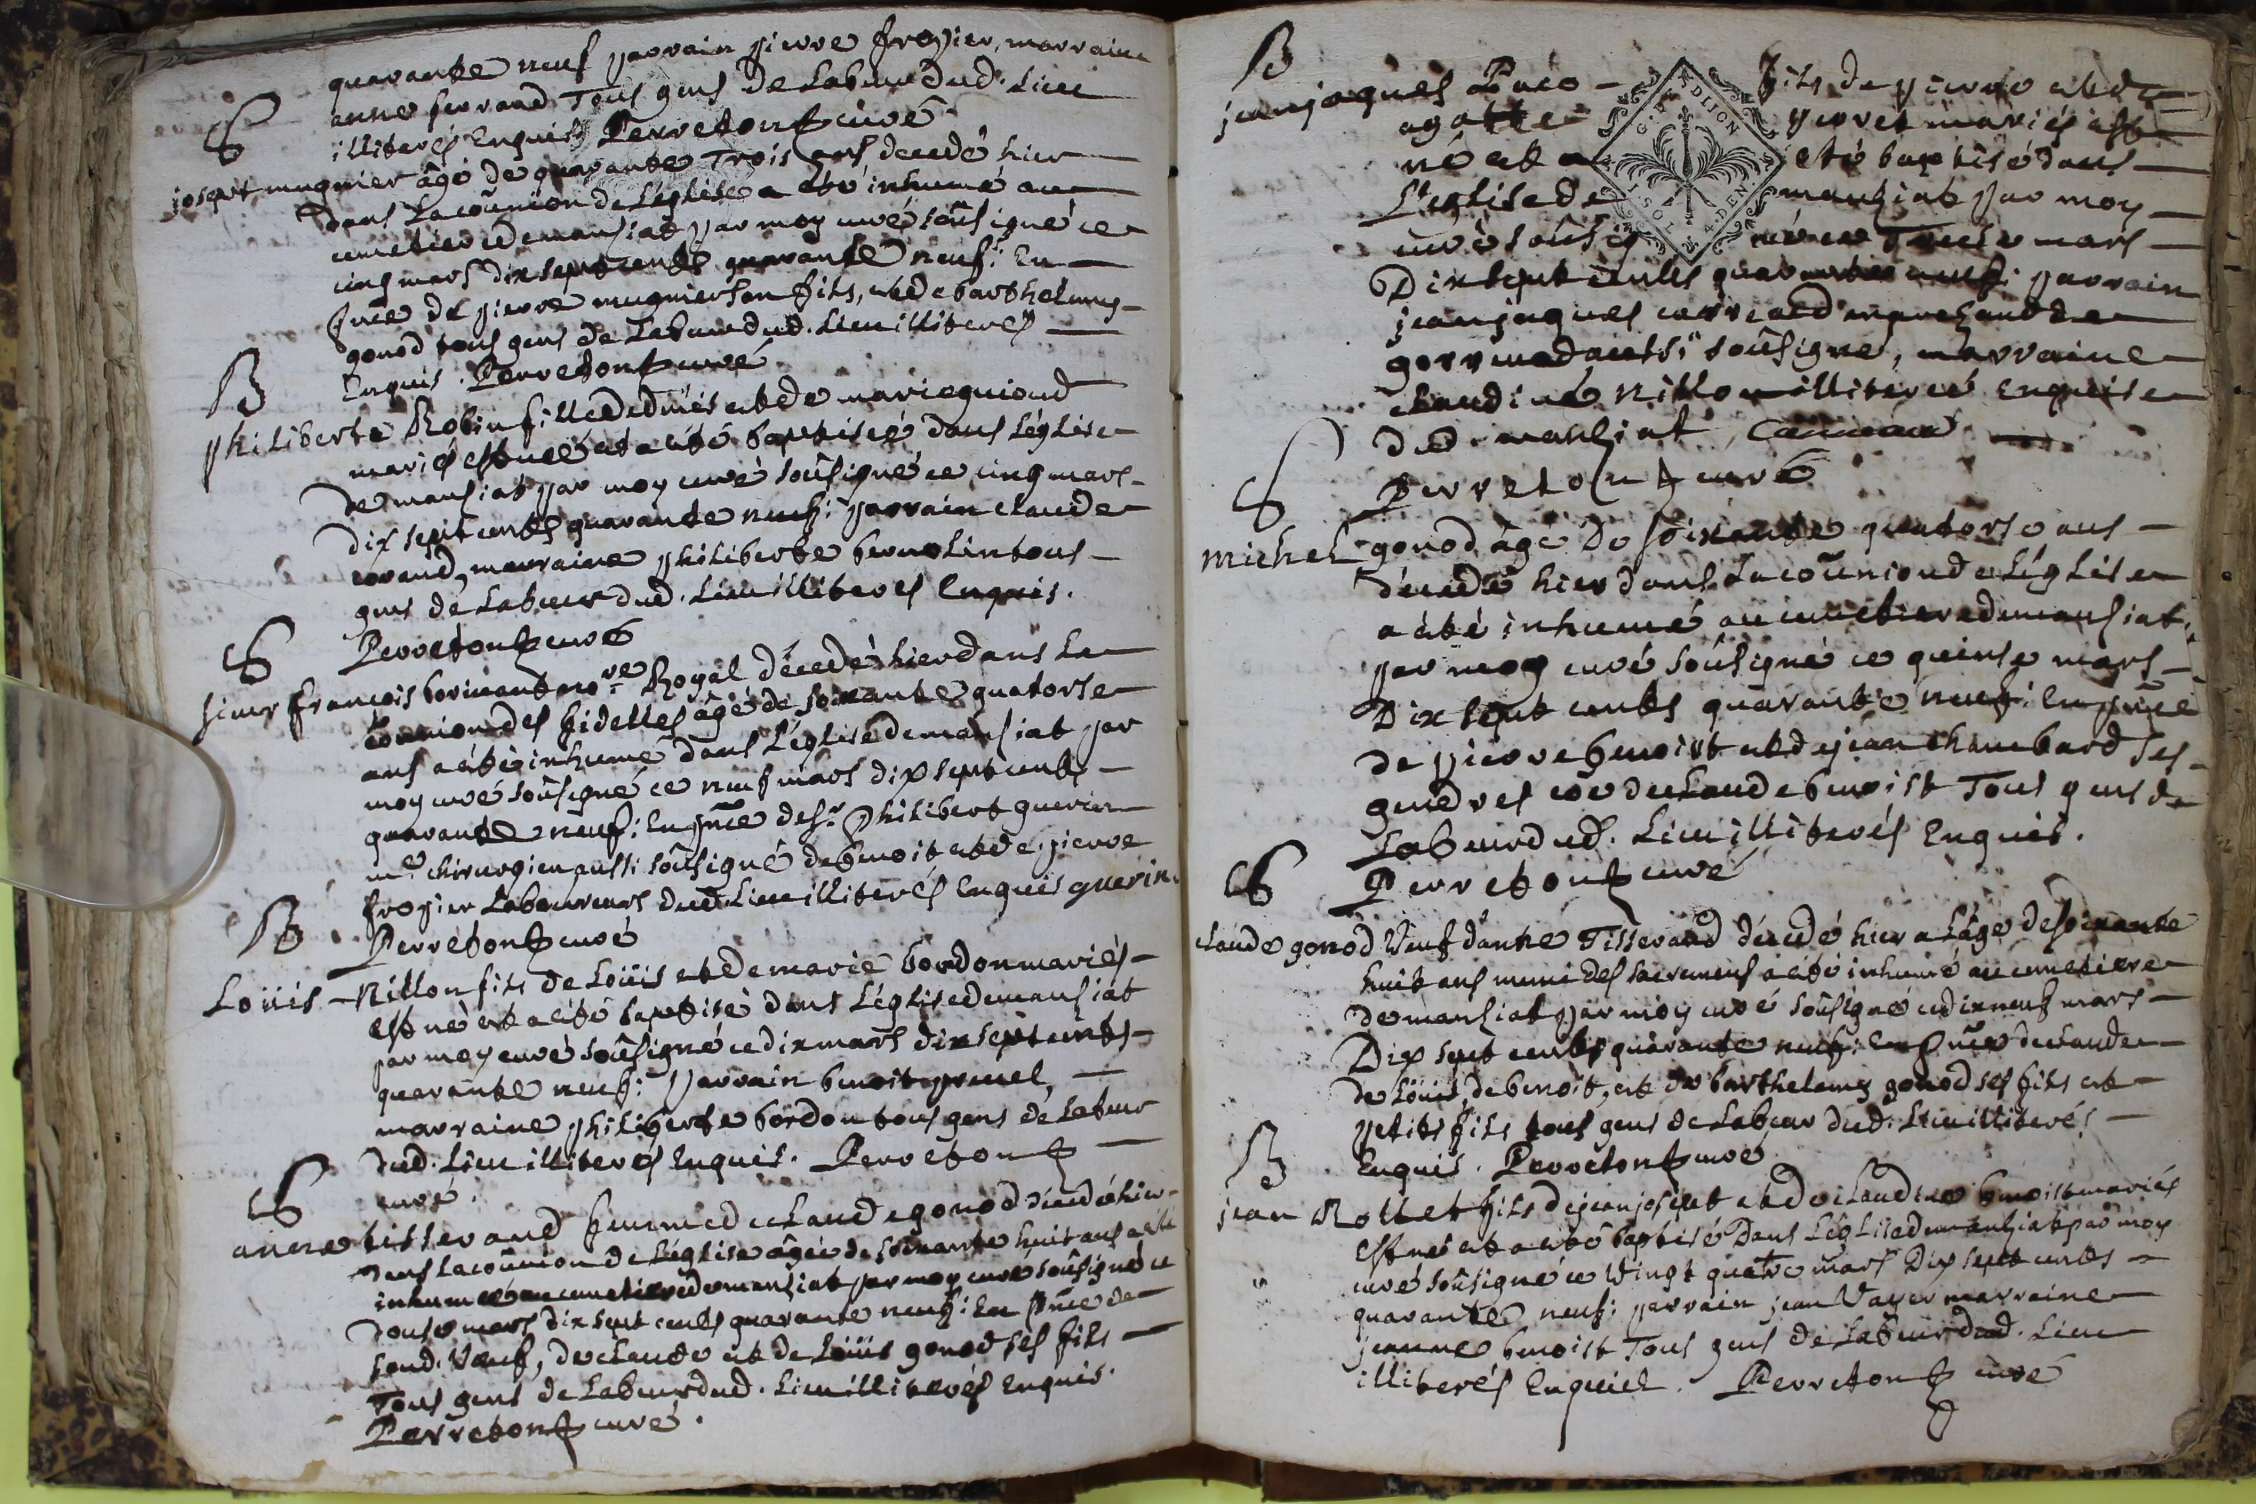 quarante neuf parrain pierre frozier, marraine
anne ferrand Tous gens de Labeur dud. Lieu
illiterés Enquis Perreton curé
S
joseph mugnier âgé de quarante Trois ans decedé hier
dans La coũnion de L'eglise a été inhumé au
cimetiere de manziat par moy curé soûsigné ce
cinq mars dix sept cents quarante neuf: En
pñce de pierre mugnier son fils, et de barthelemy
gonod tous gens de Labeur dud. Lieu illiterés
Enquis. Perreton curé
B
philiberte Robin fille d'edmé et de marie guioud
mariés est née et a été baptisée dans L'église
de manziat par moy curé soûsigné ce cinq mars
dix sept cents quarante neuf: parrain claude
ferand, marraine philiberte bernolin tous
gens de Labeur dud. Lieu illiterés Enquis.
Perreton curé
S
sieur françois borinand no.re Royal décedé hier dans La
coũnion des fidelles âgé de soixante quatorse
ans a été inhumé dans L'église de manziat par
moy curé soûsigné ce neuf mars dix sept cents
quarante neuf: En pñce de Sr. philibert guerin
me chirurgien aussi soûsigné de benoit et de pierre
frozier Laboureurs dud. Lieu illiterés Enquis guerin.
Perreton curé
B
Loüis Nillon fils de Loüis et de marie bordon mariés
est né et a été baptisé dans L'église de manziat
par moy curé soûsigné ce dix mars dix sept cents
quarante neuf: parrain benoit prunel,
marraine philiberte bordon tous gens de Labeur
dud. Lieu illiterés Enquis. Perreton
curé.
S
anne tisserand femme de claude gonod décedé hier
dans La coũnion de L'église âgée de soixante huit ans a été
inhumée au cimetiere de manziat par moy curé soûsigné ce
douse mars dix sept cents quarante neuf: En pñce de
soud. veuf, de claude et de Loüis gonod ses fils
Tous gens de Labeur dud. Lieu illiterés Enquis.
Perreton curé.
B
jean jaques Paco fils de pierre et de
agathe perret mariés est
né et a été baptisé dans
L'eglise de manziat par moy
curé soûsigné ce Treise mars
Dix sept cents quarante neuf: parrain
jean jaques carriand marchand de
gorrevod aussi soûsigné, marraine
claudine Nillon illiterée Enquise
dud. manziat Carriand
Perreton curé
S
michel gonod âgé De soixante quatorse ans
décedé hier dans La coũnion de L'église
a été inhumé au cimetiere de manziat
par moy curé soûsigné ce quinse mars
Dix sept cents quarante neuf: En pñce
de pierre benoist et de jean chambard ses
gendres et de claude benoist Tous gens de
Labeur dud. Lieu illiterés Enquis.
Perreton curé
S
claude gonod Veuf d'anne Tisserand décedé hier a L'âge de soixante
huit ans muni des sacremens a été inhumé au cimetiere
de manziat par moy curé soûsigné ce dix neuf mars
Dix sept cents quarante neuf: En pñce de claude
de Loüis, de benoit, et de barthelemy gonod ses fils et
petits fils tous gens de Labeur dud. Lieu illiterés
Enquis. Perreton curé
B
jean Rollet fils de jean joseph et de claudine benoist mariés
est né et a été baptisé Dans L'église de manziat par moy
curé soûsigné ce vingt quatre mars Dix sept cents
quarante neuf: parrain jean Vayer marraine
jeanne benoist Tous gens de Labeur dud. Lieu
illiterés Enquis. Perreton curé
G. DE DIJON
1. SOL. 4. DEN.